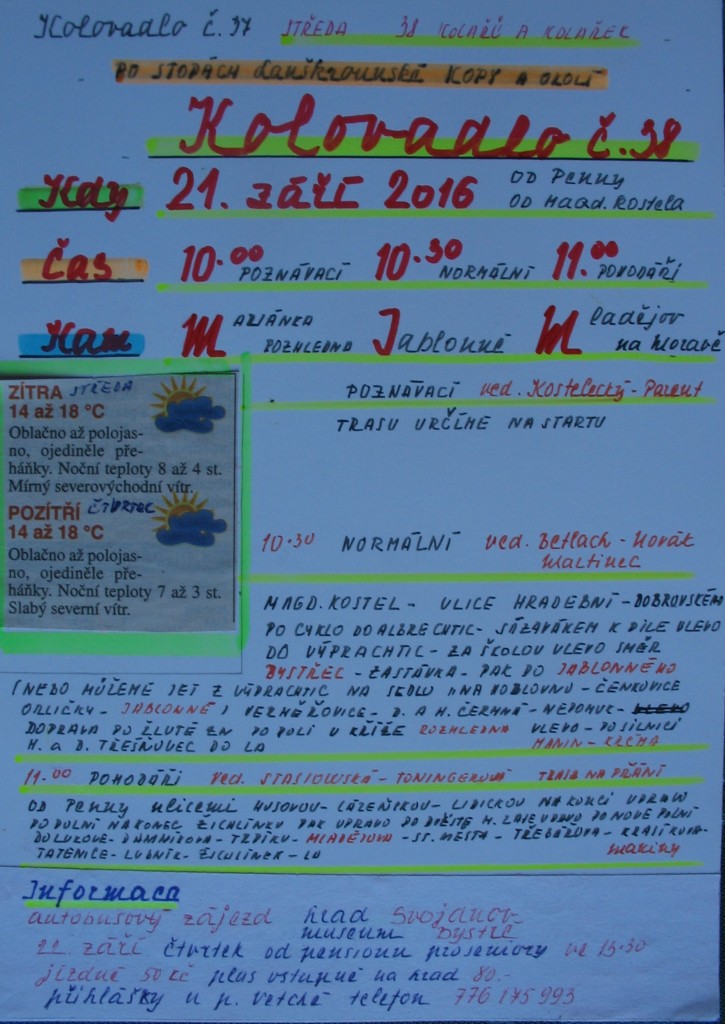 Kolovadlo č. 37 STŘEDA 38 KOLAŘŮ A KOLAŘEK
PO STOPÁCH Lanškrounské KOPY A OKOLÍ
Kolovadlo č. 38
Kdy 21. září 2016 OD Penny
OD Magd. Kostela
Čas 10.00 POZNÁVACÍ 10.30 NORMÁLNÍ 11.00 POHODÁŘI
Kam MARIÁNKA Jablonné Mladějov
ROZHLEDNA na Moravě
ZÍTRA STŘEDA
14 až 18 °C
Oblačno až polojas-
no, ojediněle pře-
háňky. Noční teploty 8 až 4 st.
Mírný severovýchodní vítr.
POZÍTŘÍ ČTVRTEK
14 až 18 °C
Oblačno až polojas-
no, ojediněle pře-
háňky. Noční teploty 7 až 3 st.
Slabý severní vítr.
POZNÁVACÍ ved. Kostelecký - Parent
TRASU URČÍME NA STARTU
10.30 NORMÁLNÍ ved. Betlach - Horák
Martinec
MAGD. KOSTEL - ULICE HRADEBNÍ - DOBROVSKÉHO
PO CYKLO DO ALBRECHTIC - SÁZAVÁKEM K PILE VLEVO
DO VÝPRACHTIC - ZA ŠKOLOU VLEVO SMĚR
BYSTŘEC - ZASTÁVKA - PAK DO JABLONNÉHO
(NEBO MŮŽEME JET Z VÝPRACHTIC NA SEDLO - ČENKOVICE
ORLIČKY - JABLONNÉ) VERMĚŘOVICE - D. A H. ČERMNÁ - NEPOMUK -
DOPRAVA PO ŽLUTÉ ZN PO POLI U KŘÍŽE ROZHLEDNA VLEVO - PO SILNICI
H. a D. TŘEŠŇOVEC DO LA HANIN - KRČMA
11.00 POHODÁŘI ved. STASIOWSKÁ - TONINGEROVÁ TRASA NA PŘÁNÍ
OD Penny ulicemi HUSOVOU - LÁZEŇSKOU - LIDICKOU NA KONCI VPRAVO
DO DOLNÍ NA KONEC ŽICHLÍNKU PAK VPRAVO DO NOVÉ DOLNÍ
DO LUKOVÉ - DAMNÍKOVA - TRPÍKU - MLADĚJOVA - ST. MĚSTA - TŘEBAŘOVA - KRASÍKOVA
TATENICE - LUBNÍK - ŽICHLÍNEK - LA
Informace
autobusový zájezd hrad Svojanov
museum Bystré
22. září čtvrtek od pensionu pro seniory ve 13.30
jízdné 50 kč plus vstupné na hrad 80.-
přihlášky u p. Vetché telefon 776 175 993